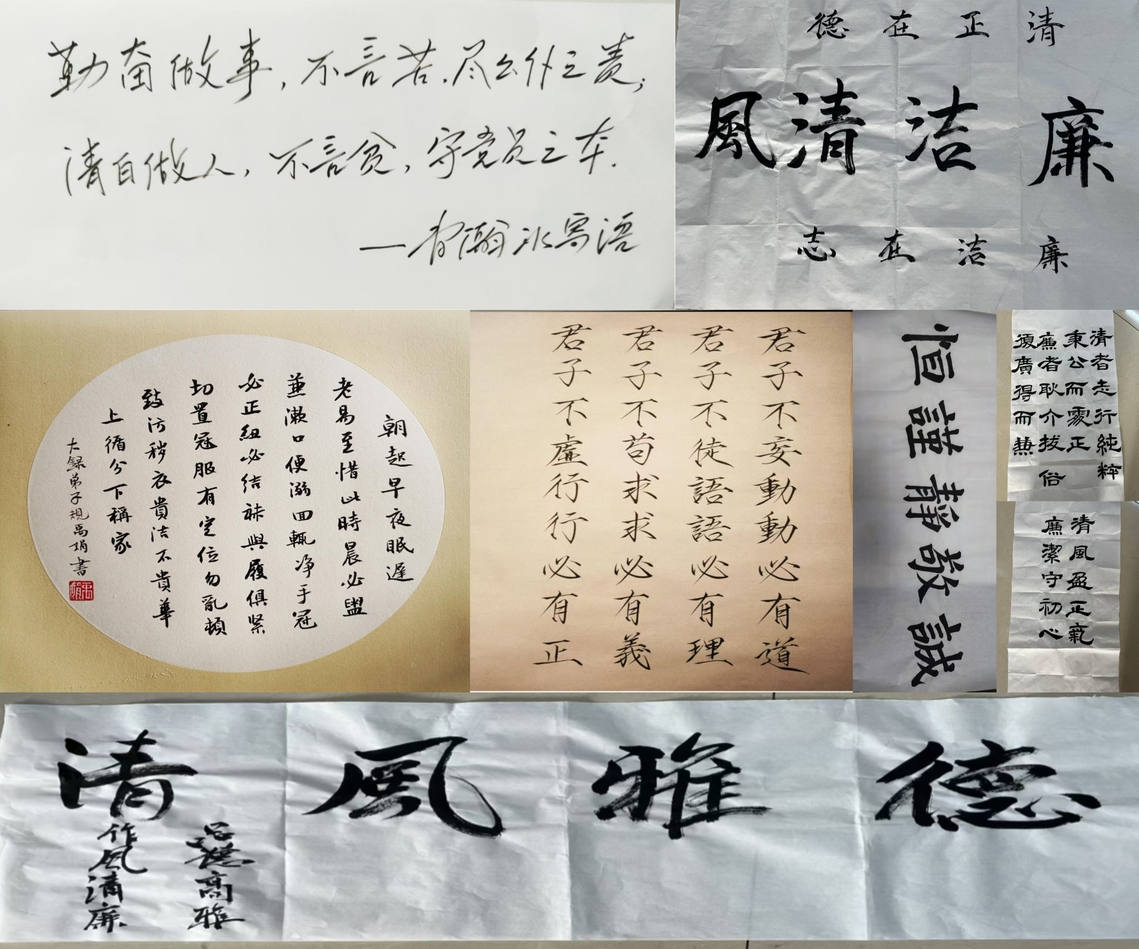 勤奋做事,不言苦,尽公仆之责;
清白做人,不言贫,守党员之本.
清正在德
廉洁清風
廉洁在志
朝起早夜眠遲
老易至惜此時晨必盥
兼漱口便溺回輒净手冠
必正紐必结袜與履俱紧
切置冠服有定位勿亂頓
致污穢衣貴洁不貴華
上循分下稱家
弟子规禹娟書
君子不妄動動必有道
君子不徒語語必有理
君子不苟求求必有義
君子不虚行行必有正
恒謹靜敬誠
清者志行純粹
秉公而處正
廉者耿介拔俗
廣得而
清風盈正氣
廉潔守初心
德雅風清
品德高雅
作風清廉